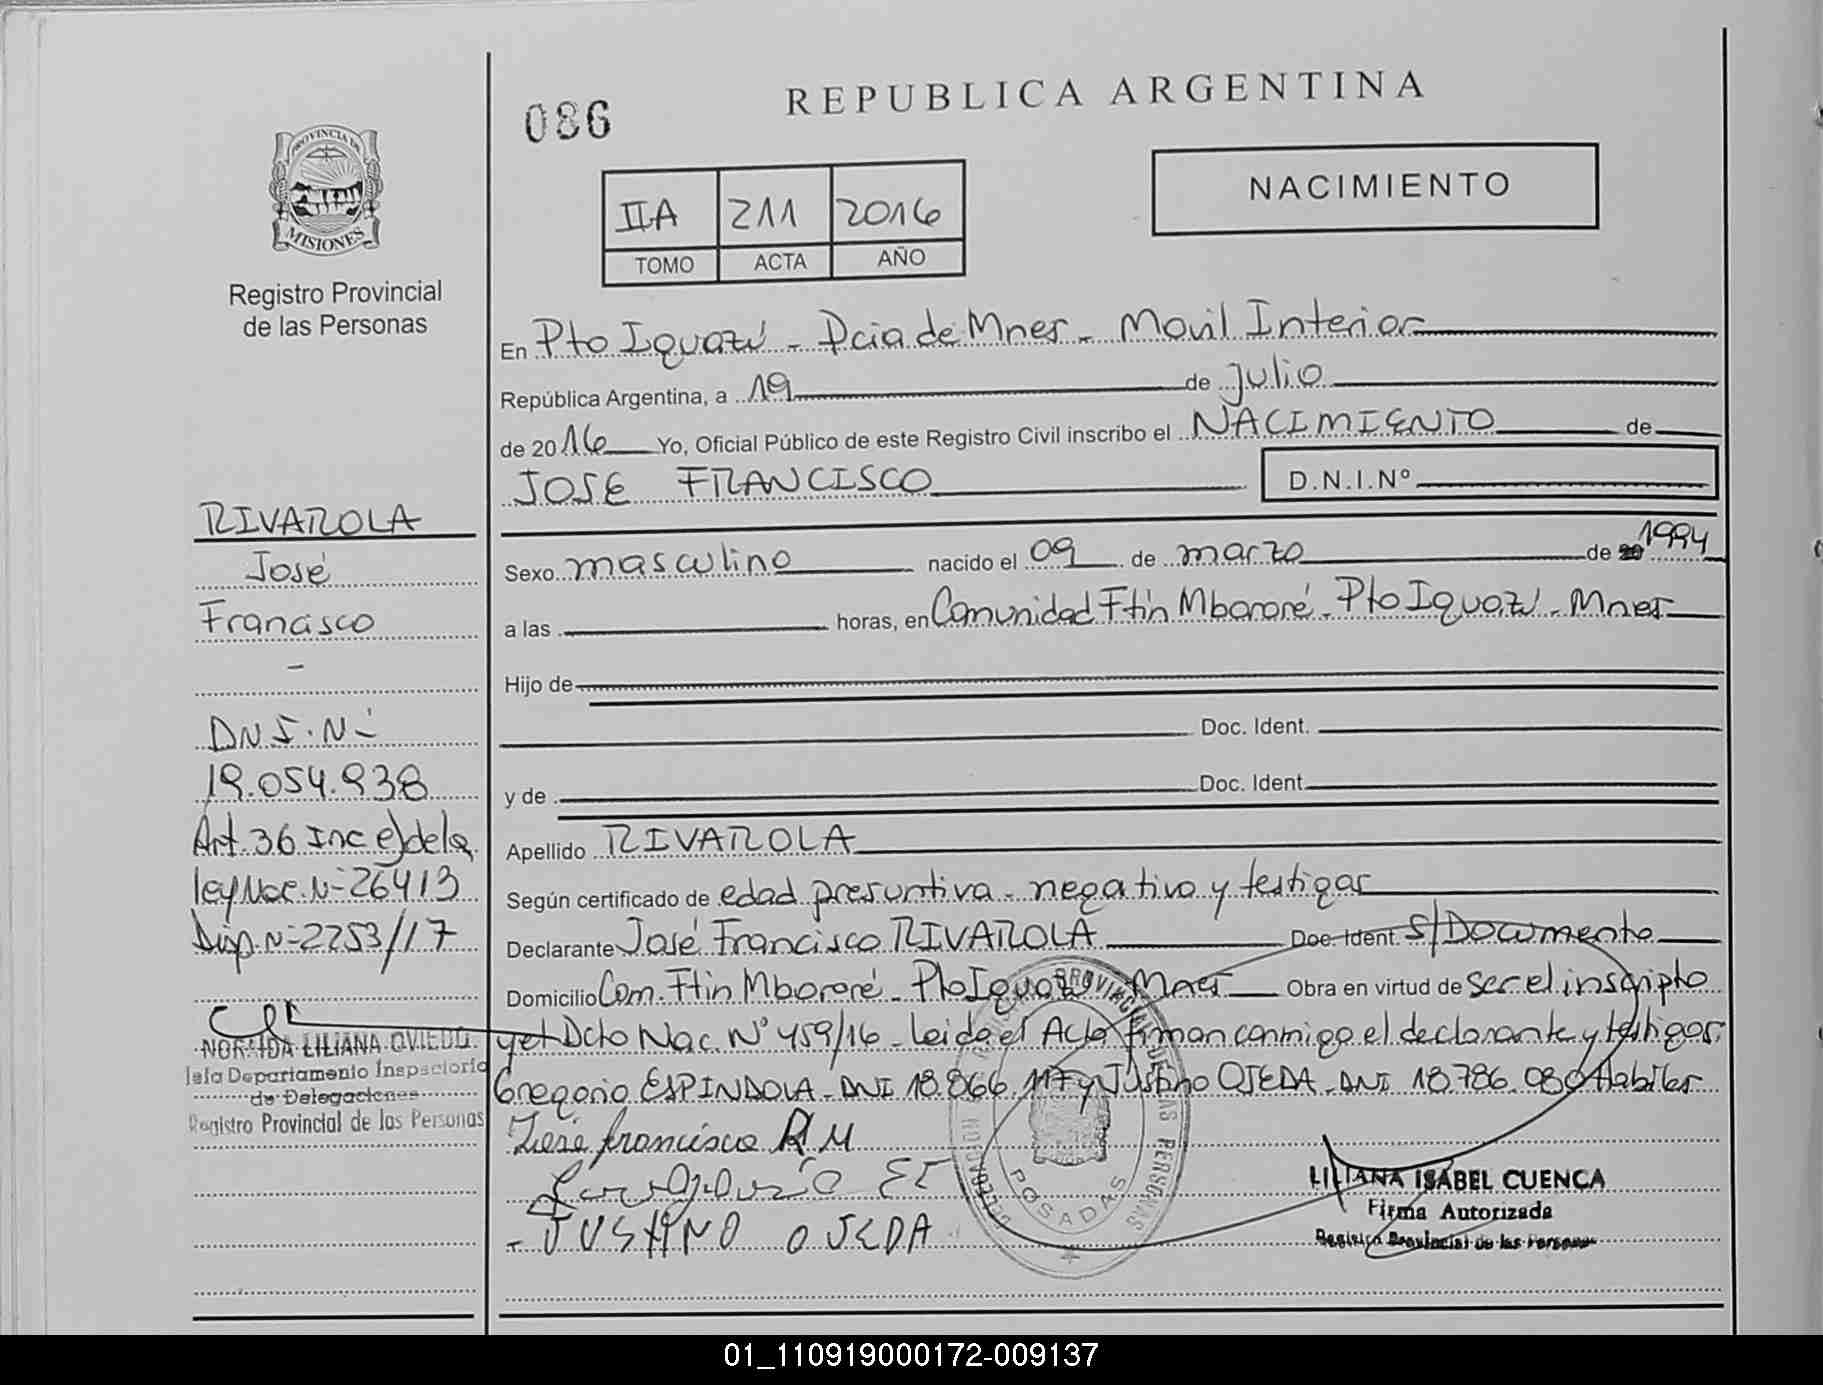 086
REPUBLICA ARGENTINA
PROVINCIA DE
MISIONES
Registro Provincial
de las Personas
NACIMIENTO
IIA 211 2016
TOMO ACTA AÑO
En Pto Iguazú - Pcia de Mnes - Movil Interior
República Argentina, a 19 de julio
de 2016 Yo, Oficial Público de este Registro Civil inscribo el NACIMIENTO de
JOSE FRANCISCO D.N.I.Nº
Sexo masculino nacido el 09 de marzo de 20 1994
a las horas, en Comunidad Ftin Mbororé - Pto Iguazú - Mnes
Hijo de
Doc. Ident.
y de Doc. Ident.
Apellido RIVAROLA
Según certificado de edad presuntiva - negativo y testigos
Declarante José Francisco RIVAROLA Doc. Ident. S/Documento
Domicilio Com. Ftin Mbororé - Pto Iguazú Mnes Obra en virtud de ser el inscripto
y el Dcto Nac. Nº 459/16 - Leida el Acta firman conmigo el declarante y testigos,
Gregorio ESPINDOLA - DNI 18.866.117 y Justino OJEDA - DNI 18.786.080 Habiles
José francisco R M
JUSTINO OJEDA
RIVAROLA
José
Francisco
-
DNI. Nº
19.054.938
Art. 36 Inc e) de la
ley Nac. Nº 26413
Disp. Nº 2253/17
NORMA LILIANA OVIEDO
Jefa Departamento Inspectoria
de Delegaciones
Registro Provincial de las Personas
POSADAS
LILIANA ISABEL CUENCA
Firma Autorizada
Registro Provincial de las Personas
01_110919000172-009137